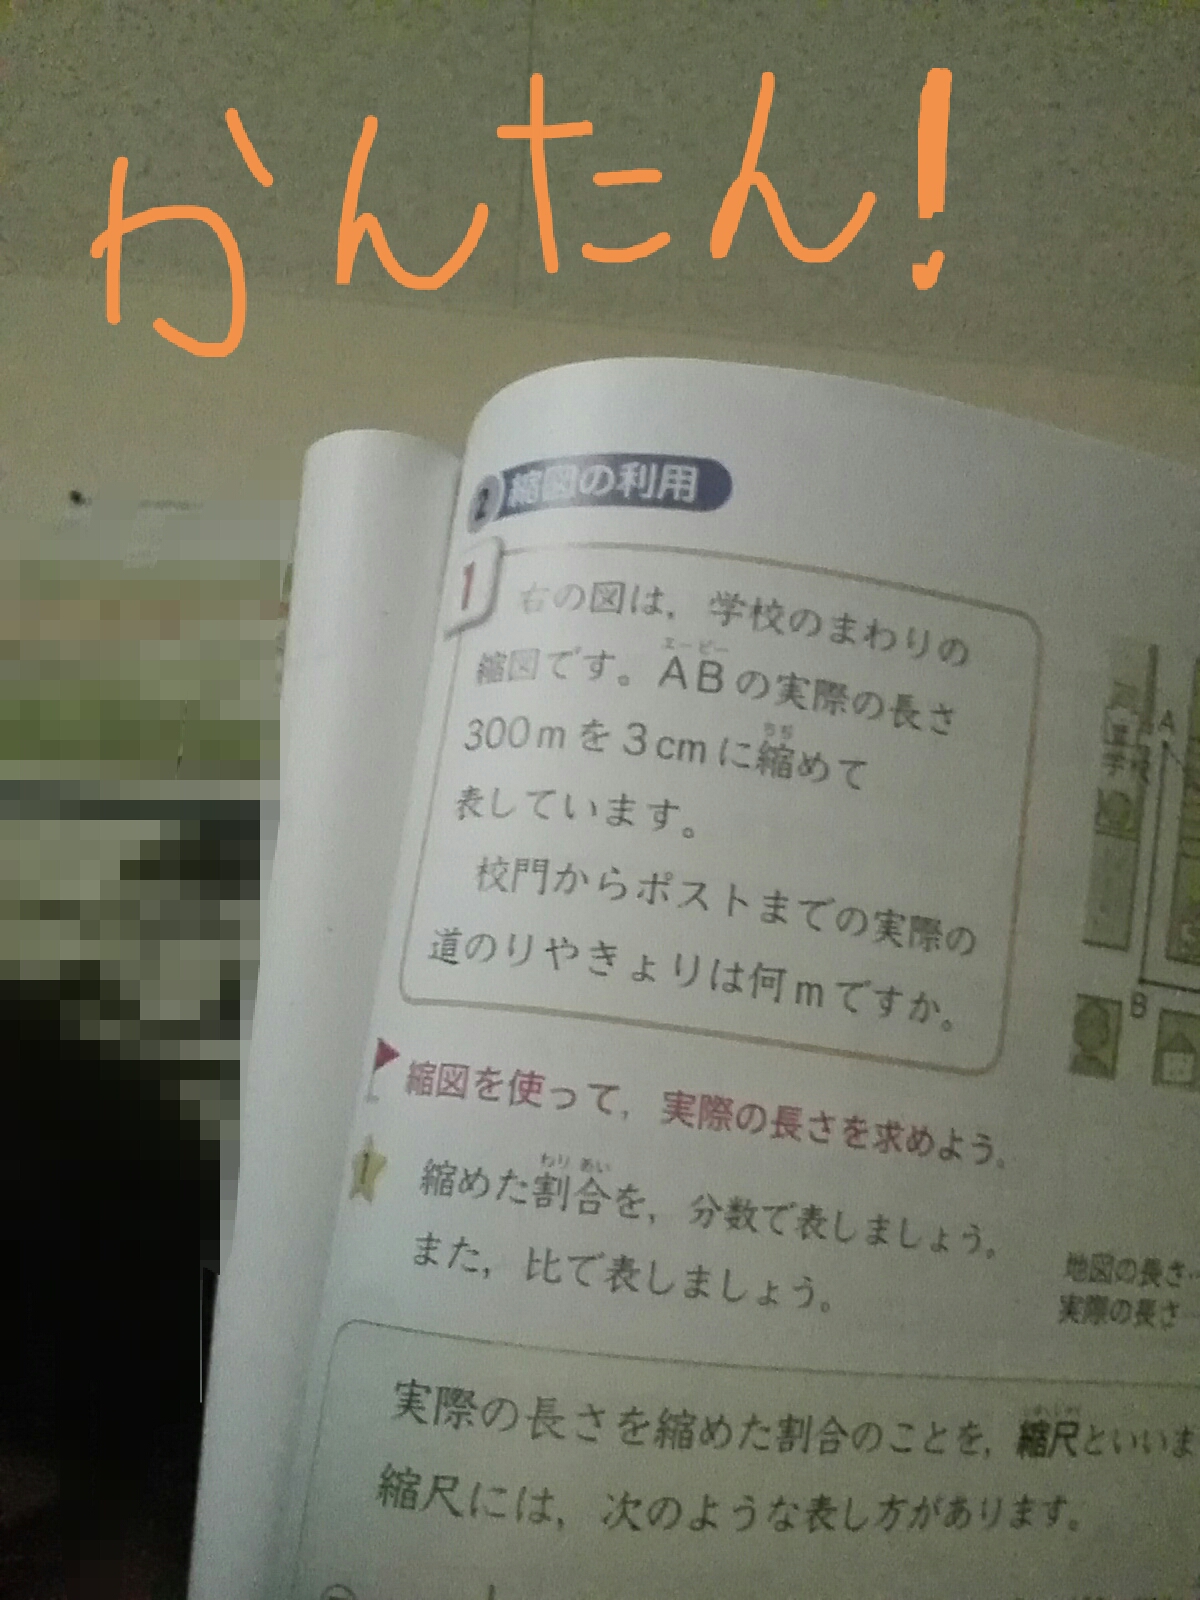 かんたん!
2 縮図の利用
1 右の図は，学校のまわりの
縮図です。ABの実際の長さ
エービー
300mを3cmに縮めて
ちぢ
表しています。
校門からポストまでの実際の
道のりやきょりは何mですか。
縮図を使って，実際の長さを求めよう。
1 縮めた割合を，分数で表しましょう。
わりあい
また，比で表しましょう。
A
学校
B
地図の長さ
実際の長さ
実際の長さを縮めた割合のことを，縮尺といいま
縮尺には，次のような表し方があります。